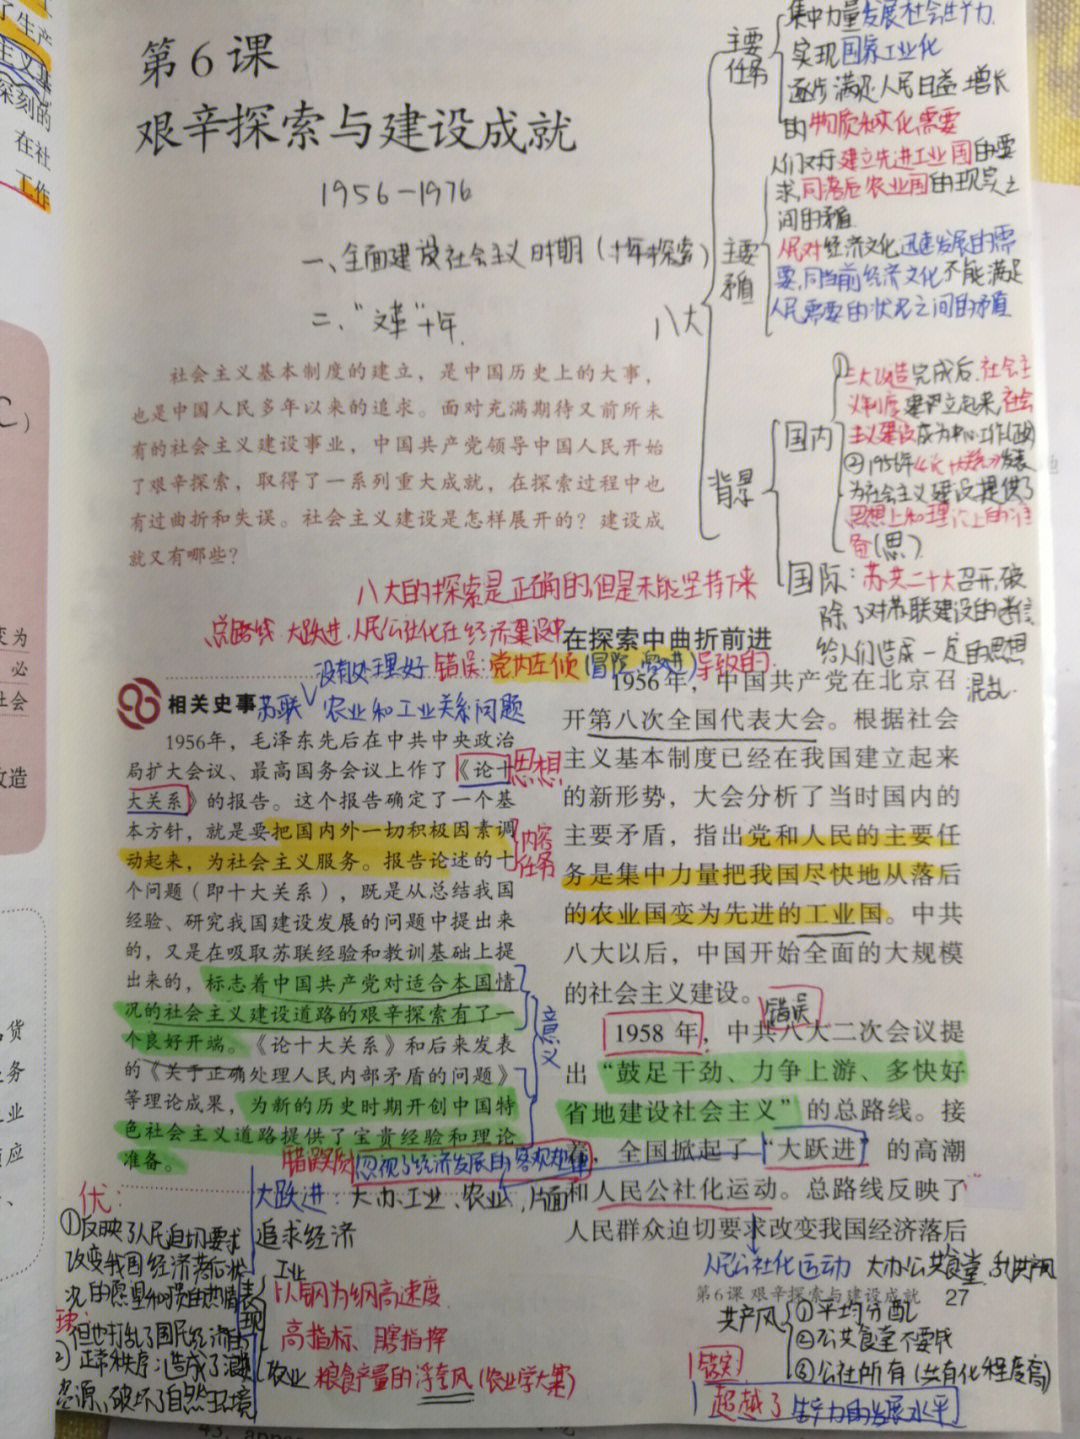 了生产
主义基
深刻的
在社
工作
第6课
艰辛探索与建设成就
1956-1976
一、全面建设社会主义时期（十年探索）
二、“文革”十年
八大
主要
任务
集中力量发展社会生产力
实现国家工业化
逐步满足人民日益增长
的物质和文化需要
主要
矛盾
人们对于建立先进工业国的要
求,同落后农业国的现实之
间的矛盾
人民对经济文化迅速发展的需
要,同当前经济文化不能满足
人民需要的状况之间的矛盾
背景
国内
①三大改造完成后,社会主
义制度建立起来,社会
主义建设成为中心工作
②1956年《论十大关系》发表
为社会主义建设提供了
思想上和理论上的准
备(思)
国际：苏共二十大召开,破
除了对苏联建设的迷信
给人们造成一定的思想
混乱
社会主义基本制度的建立，是中国历史上的大事，
也是中国人民多年以来的追求。面对充满期待又前所未
有的社会主义建设事业，中国共产党领导中国人民开始
了艰辛探索，取得了一系列重大成就，在探索过程中也
有过曲折和失误。社会主义建设是怎样展开的？建设成
就又有哪些？
八大的探索是正确的,但是未能坚持下来
总路线 大跃进、人民公社化在经济建设中
错误:党内左倾(冒险 冒进)导致的
没有处理好
苏联 农业和工业关系问题
相关史事
1956年，毛泽东先后在中共中央政治
局扩大会议、最高国务会议上作了《论十
大关系》的报告。这个报告确定了一个基
本方针，就是要把国内外一切积极因素调
动起来，为社会主义服务。报告论述的十
个问题（即十大关系），既是从总结我国
经验、研究我国建设发展的问题中提出来
的，又是在吸取苏联经验和教训基础上提
出来的，标志着中国共产党对适合本国情
况的社会主义建设道路的艰辛探索有了一
个良好开端。《论十大关系》和后来发表
的《关于正确处理人民内部矛盾的问题》
等理论成果，为新的历史时期开创中国特
色社会主义道路提供了宝贵经验和理论
准备。
思想
内容
任务
意义
在探索中曲折前进
1956年，中国共产党在北京召
开第八次全国代表大会。根据社会
主义基本制度已经在我国建立起来
的新形势，大会分析了当时国内的
主要矛盾，指出党和人民的主要任
务是集中力量把我国尽快地从落后
的农业国变为先进的工业国。中共
八大以后，中国开始全面的大规模
的社会主义建设。
错误
1958年，中共八大二次会议提
出“鼓足干劲、力争上游、多快好
省地建设社会主义”的总路线。接
着，全国掀起了“大跃进”的高潮
和人民公社化运动。总路线反映了
人民群众迫切要求改变我国经济落后
忽视了经济发展的客观规律
大跃进：大办工业、农业，片面
追求经济
优：
①反映了人民迫切要求
改变我国经济落后状
况的愿望
正常秩序：造成了
资源，破坏了自然环境
表现
工业
以钢为纲高速度
高指标、瞎指挥
农业 粮食产量的浮夸风
人民公社化运动 大办公共食堂,乱共产风
第6课 艰辛探索与建设成就 27
共产风
①平均分配
②公共食堂不要钱
③公社所有(公有化程度高)
错误
超越了生产力的发展水平
变为
必
社会
改造
货
务
业
应